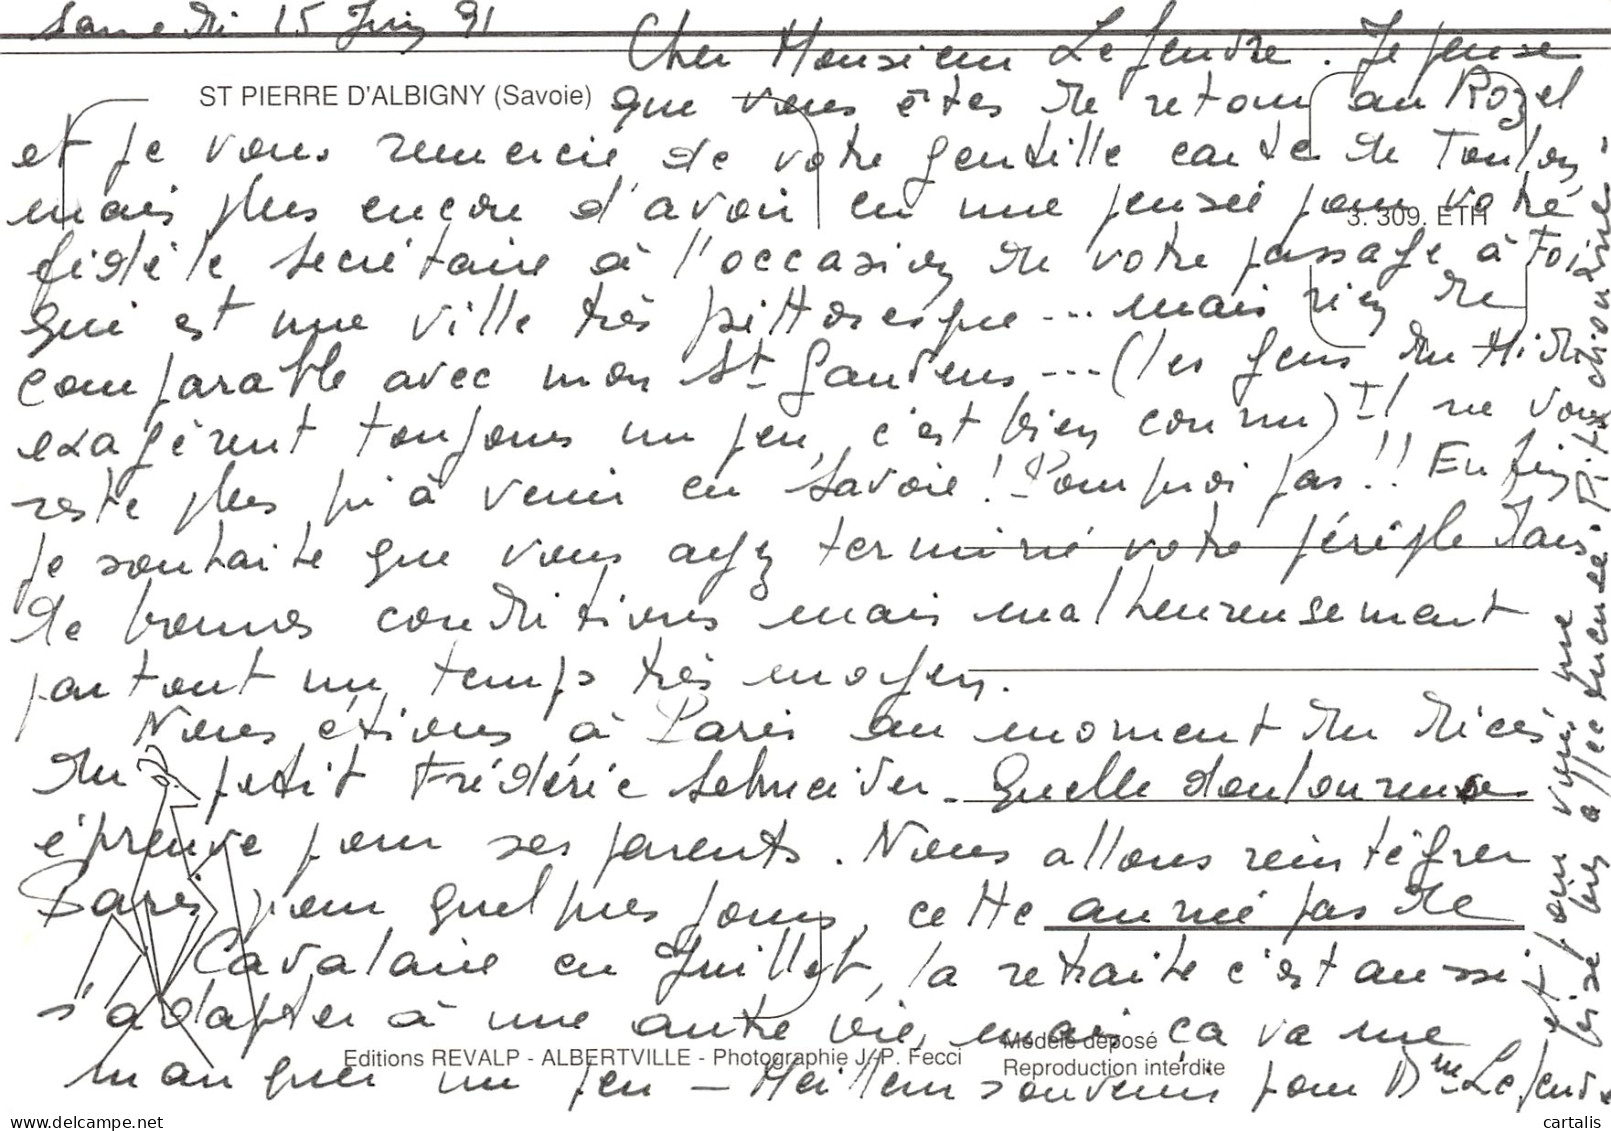 Samedi 15 Juin 91
Cher Monsieur Lefendre. Je pense
ST PIERRE D'ALBIGNY (Savoie)
que vous êtes de retour au Rozel
et je vous remercie de votre gentille carte de Toulon
mais plus encore d'avoir eu une pensée pour votre
3. 309. ETH
fidèle secrétaire à l'occasion de votre passage à Foix
qui est une ville très pittoresque... mais rien de
comparable avec mon St Gaudens... (les gens du Midi
exagèrent toujours un peu, c'est bien connu) Il ne vous
reste plus qu'à venir en Savoie! Pourquoi pas!! Enfin
je souhaite que vous ayez terminé votre périple dans
de bonnes conditions mais malheureusement
partout un temps très moyen.
Nous étions à Paris au moment du décès
du petit Frédéric Schneider. Quelle douloureuse
épreuve pour ses parents. Nous allons réintégrer
Paris pour quelques jours, cette année pas de
Cavalaire en Juillet, la retraite c'est aussi
s'adapter à une autre vie, mais ça va me
Modèle déposé
Editions REVALP - ALBERTVILLE - Photographie J.-P. Fecci
Reproduction interdite
manquer un peu — Meilleurs souvenirs pour Dme Lefendre
et pour vous une
bise bien affectueuse.